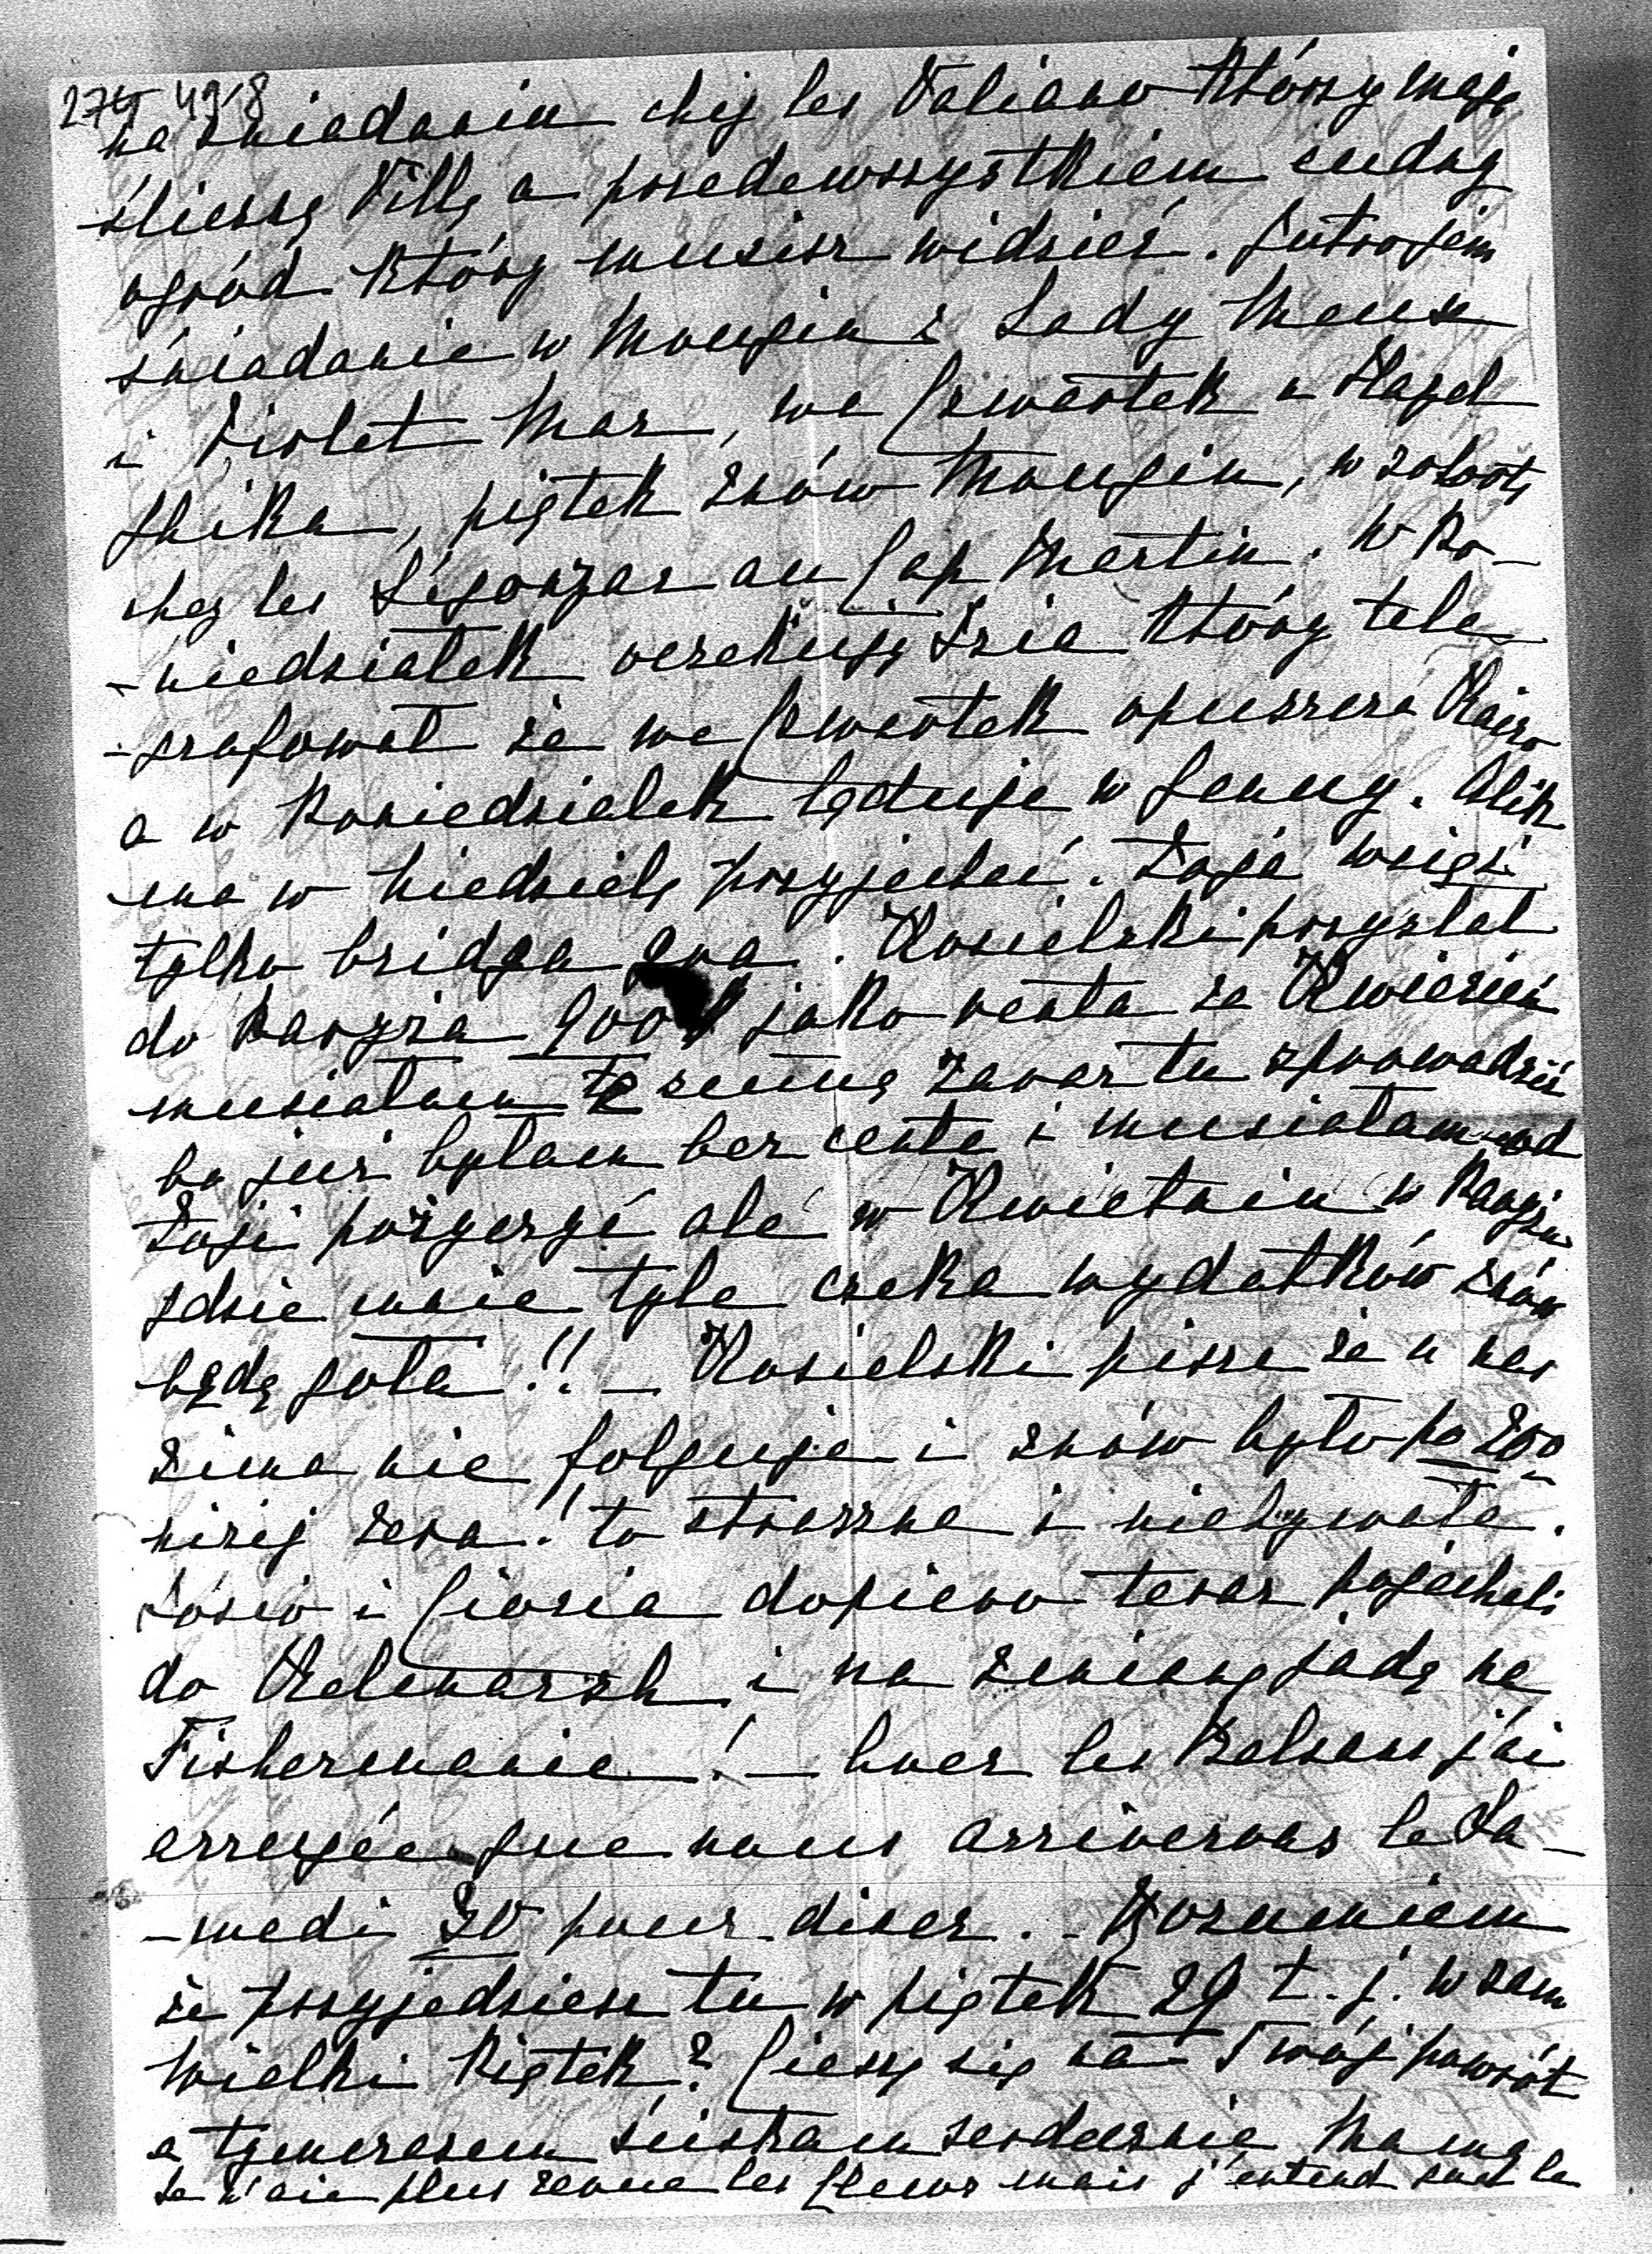 274 49-8
na śniadaniu chez les Valiano którzy mają
śliczną Villę a przedewszystkiem cudny
ogród który musisz widzieć. Jutro jem
śniadanie w Mougin z Lady Meux
i Violet Mar, we Czwartek u
Ghika, piątek znów Mougin, w sobotę
chez les au Cap Martin. W Po-
-niedziałek oczekuję który tele-
-grafował że we Czwartek opuszcza Kairo
a w Poniedziałek ląduje w Genuy. Alik
ma w Niedzielę przyjechać. Zoja wciąż
tylko bridga gra. Kosielski przysłał
do Paryża 900 jako renta za Kwiecień
musiałam tę sumę zaraz tu sprowadzić
bo już byłam bez centa i musiałam od
Zoji pożyczyć ale w Kwietniu w Paryżu
gdzie mnie tyle czeka wydatków znów
będę goła!! — Kosielski pisze że u nas
zima nie folguje i znów było po 20o
niżej zera! to straszne i niebywałe.
i dopiero teraz pojechali
do i na zmianę jadą na
Fishermanie! — Avec les Balsans j'ai
arrangée que nous arriverons le Sa-
-medi 30 pour diner. - Rozumiem
że przyjedziesz tu w piątek 29 t. j. w sam
Wielki Piątek? Cieszę się na Twój powrót
a tymczasem ściskam serdecznie Mama
Je n'ai plus revue les mais j'entend que le